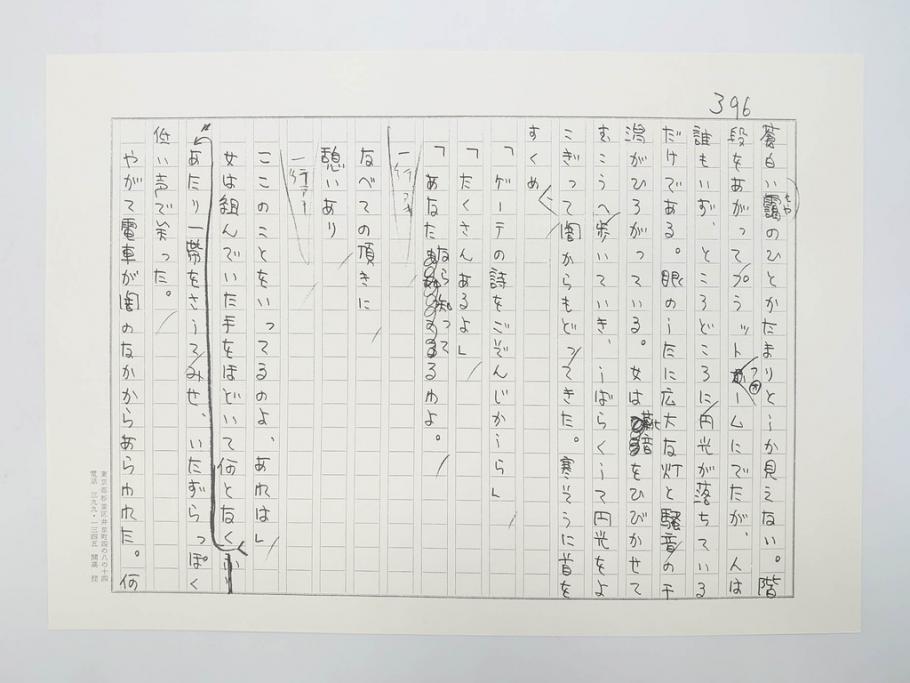 396
蒼白い靄のひとかたまりとしか見えない。階
もや
段をあがってプラットフォームにでたが、人は
誰もいず、ところどころに円光が落ちている
だけである。眼のしたに広大な灯と騒音の干
潟がひろがっている。女は靴音をひびかせて
むこうへ歩いていき、しばらくして円光をよ
こぎって闇からもどってきた。寒そうに首を
すくめ
「ゲーテの詩をごぞんじかしら」
「たくさんあるよ」
「あなたなら知ってるわよ。
一行アキ
なべての頂きに
憩いあり
一行アキ
ここのことをいってるのよ、あれは」
女は組んでいた手をほどいて何となく
あたり一帯をさしてみせ、いたずらっぽく
低い声で笑った。
やがて電車が闇のなかからあらわれた。何
東京都杉並区井草町四の八の十四
電話 三九九・一三四五 開高 健